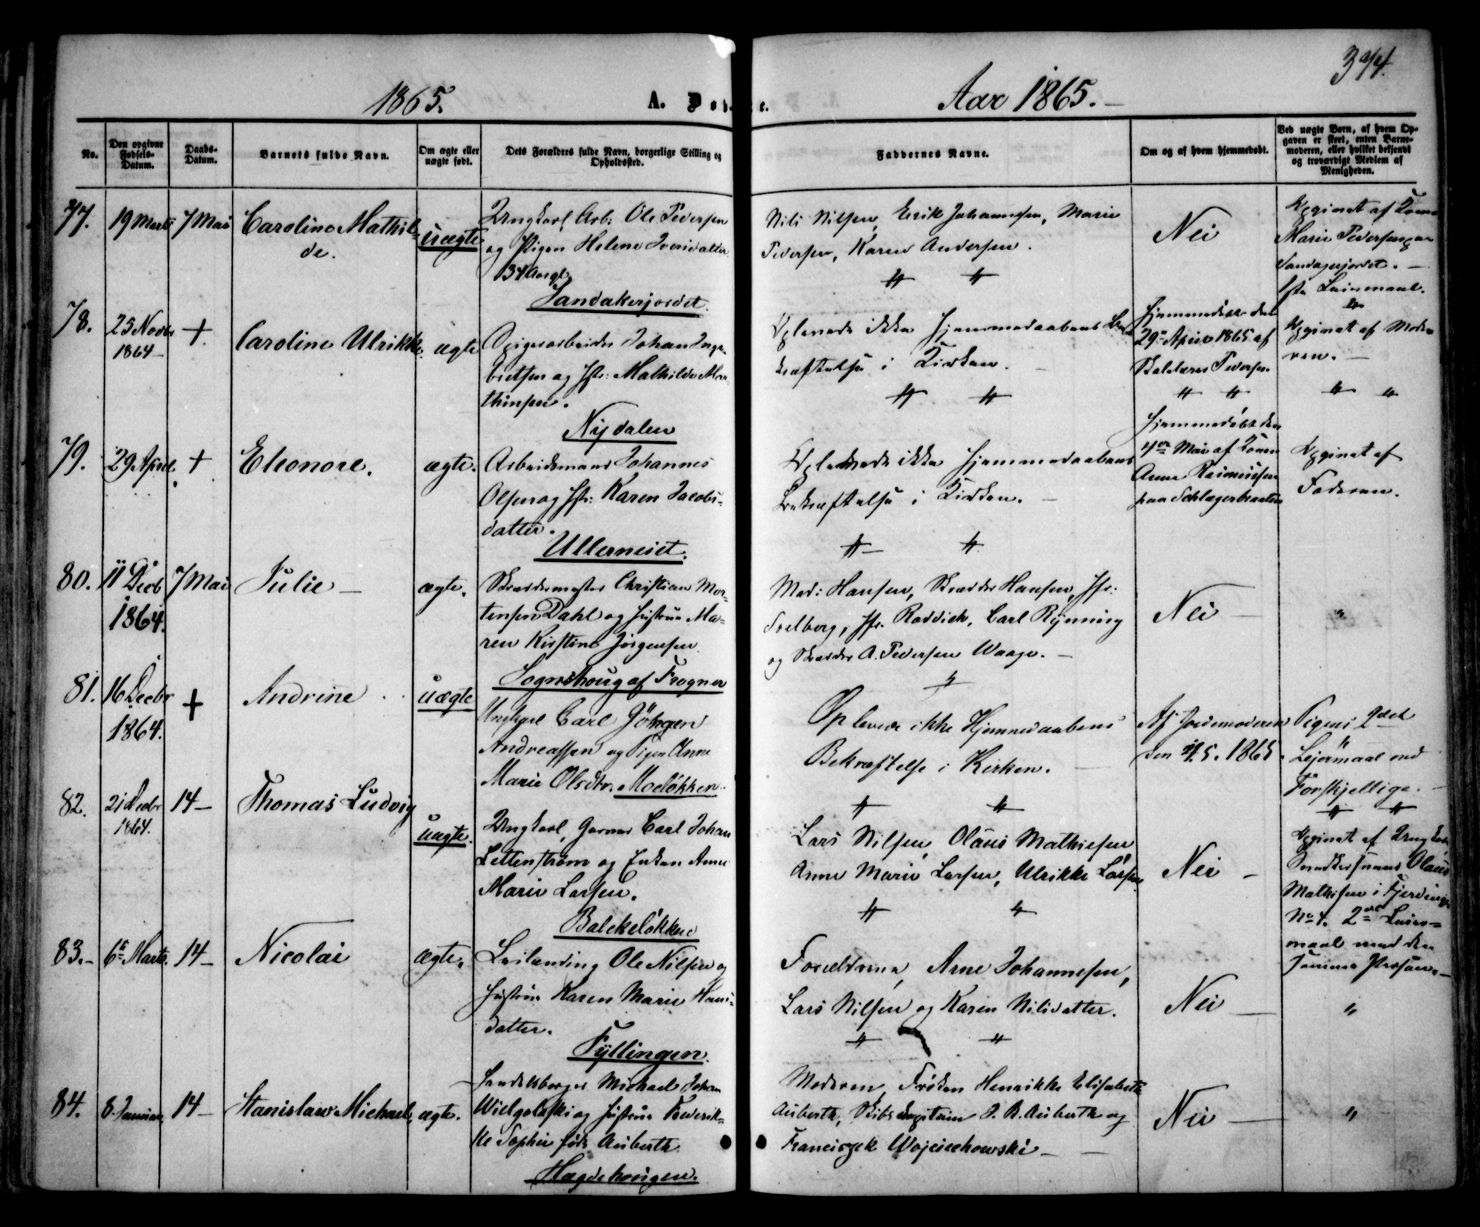 394.
1865.
A. Døb
e.
Aar 1865.
No.
Den opgivne Fødsels-Datum.
Daabs-Datum.
Barnets fulde Navn.
Om ægte eller uægte født.
Dets Forældres fulde Navn, borgerlige Stilling og Opholdssted.
Faddernes Navne.
Om og af hvem hjemmedøbt.
Ved uægte Børn, af hvem Opgaven er skeet, enten Barnemoderen, eller hvilket bekjendt og troværdigt Medlem af Menigheden.
77. 19 Marts 7 Mai Caroline Mathil-
de.
uægte
Ungkarl, Arb. Ole Pedersen
og Pigen Helene Iversdatter
34 Aar gl.
Sandakerjordet.
Nils Nilsen, Erik Johannesen, Marie
Pedersen, Karen Andersen.
Nei
Opgivet af Kone
Marie Pedersen
Sandakerjordet.
1ste Leiermaal.
78. 25 Novbr 1864 + Caroline Ulrikke. ægte
Johan Inge-
britsen og Hstr: Mathilde Mar-
thinsen.
Nydalen
Oplevede ikke Hjemmedaabens Be-
kræftelse i Kirken.
Hjemmedøbt den
29de April 1865 af
Pedersen
Opgivet af Mode-
ren.
79. 29 April. + Eleonore. ægte.
Arbeidsmand Johannes
Olsen og Hst: Karen Jacobs-
datter.
Ullernejet.
Oplevede ikke Hjemmedaabens
Bekræftelse i Kirken.
Hjemmedøbt den
4de Mai af Konen
Anne Rasmussen
paa Schlagerbraaten
Opgivet af
Faderen.
80. 11 Decb 1864. 7 Mai Julie ægte.
Skræddermester Christian Mor-
tensen Dahl og Hustru Ma-
ren Kirstine Jørgensen
Sognshoug af Frogner
Mad: Hansen, Skrædder Hansen, Jfr:
Solberg, Jfr. Roddick, Carl Rynning
og Skrædder A. Pedersen Waage.
Nei
"
81. 16 Decbr 1864. + Andrine uægte
Ungkarl Carl Jörgen
Andreassen og Pigen Anne
Marie Olsdtr. Moeløkken.
Oplevede ikke Hjemmedaabens
Bekræftelse i Kirken.
Af Jordemoderen
den 4/5. 1865.
Pigens 2det
Lejermaal med
Forskjellige.
82. 21 Decbr 1864. 14 Thomas Ludvig
uægte.
Ungkarl, Garver Carl Johan
Letterstrøm og Enken Anne
Marie Larsen.
Balkeløkken
Lars Nilsen, Olaus Mathiesen
Anne Marie Larsen, Ulrikke Larsen
Nei
Opgivet af Ungkarl,
Snedkersvend Olaus
Mathisen i Fjerdingen
No 4. 2det Leier-
maal med den
samme Person.
83. 6te Marts 14 Nicolai ægte.
Leilænding Ole Nilsen og
Hustrue Karen Marie Hans-
datter.
Fyllingen.
Forældrene, Arne Johannesen,
Lars Nilsen og Karen Nilsdatter.
Nei
"
84. 8. Januar. 14 Stanislaw Michael, ægte.
Handelsborger Michael Johan
Wielgolaski og Hustrue Frederik-
ke Sophie født Auberth
Hægdehougen.
Moderen, Frøken Henrikke Elisabeth
Auberth, Skibskapitain J. B. Auberth og
Franciszek Wojciechowski
Nei
"